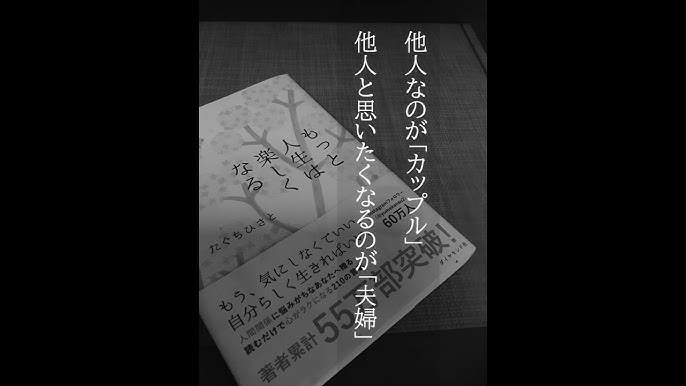 他人なのが「カップル」
他人と思いたくなるのが「夫婦」
もっと
人生は
楽しく
なる
たぐちひさと
もう、気にしなくていい
自分らしく生きればいい
人間関係に悩みがちなあなたへ贈る
読むだけで心がラクになる210の言葉
著者累計55万部突破!
Instagramフォロワー
60万人
ダイヤモンド社